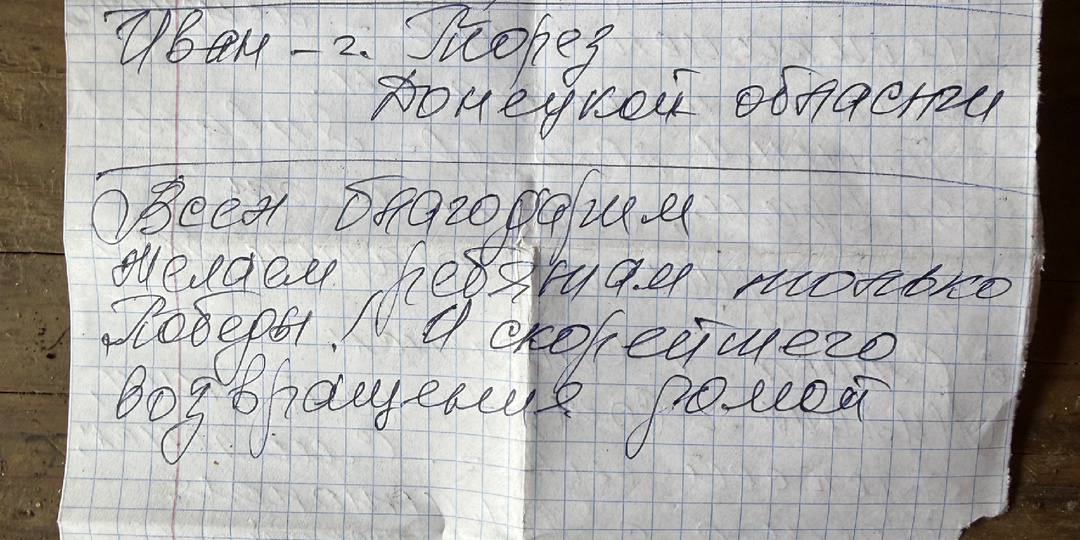 Иван – г. Торез
Донецкой области
Всем благодарим
желаем ребятам только
Победы! И скорейшего
возвращения домой